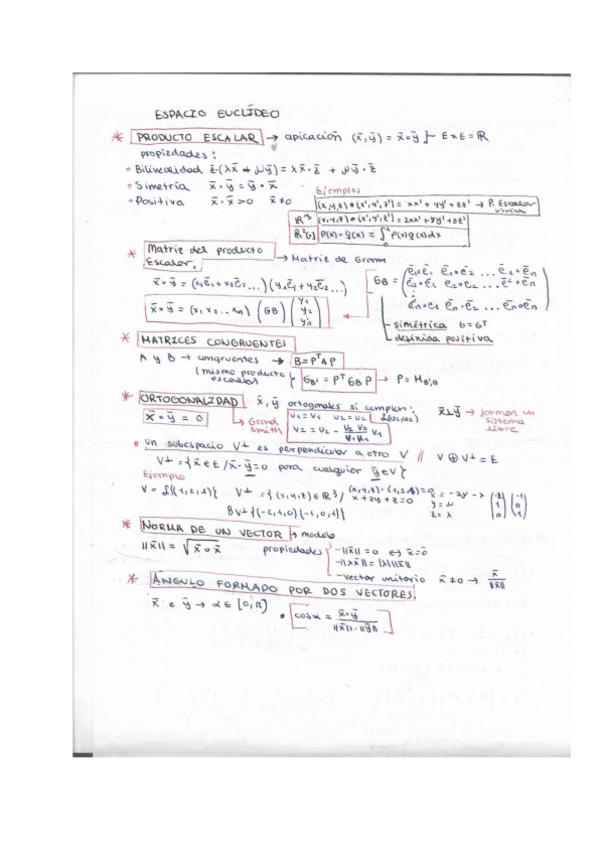 ESPACIO EUCLÍDEO
* PRODUCTO ESCALAR → apicación (x̄,ȳ) = x̄∘ȳ }- E×E = ℝ
propiedades:
• Bilinealidad z̄·(λx̄ + μȳ) = λx̄·z̄ + μȳ·z̄
• Simetría x̄·ȳ = ȳ·x̄
• Positiva x̄·x̄>0 x̄≠0
Ejemplos
(x,y,z)∘(x',y',z') = xx' + yy' + zz' → P. Escalar
ℝ³ (x,y,z)∘(x',y',z') = 2xx' + yy' + zz'
P(x)·q(x) = ∫₀¹ P(x)q(x)dx
* Matriz del producto Escalar. → Matriz de Gram
x̄∘ȳ = (x₁ē₁ + x₂ē₂ ...)(y₁ē₁ + y₂ē₂ ...)
GB = (ē₁∘ē₁ ē₁∘ē₂ ... ē₁∘ēn
ē₂∘ē₁ ē₂∘ē₂ ... ē₂∘ēn
ēn∘ē₁ ēn·ē₂ ... ēn∘ēn)
x̄∘ȳ = (x₁ x₂ ... xn) (GB) (y₁ y₂ yn)
simétrica G=Gᵀ
definida positiva
* MATRICES CONGRUENTES
A y B → congruentes → B = PᵀAP
(mismo producto escalar) } GB' = Pᵀ GB P → P = MB'B
* ORTOGONALIDAD x̄,ȳ ortogonales si cumplen:
x̄∘ȳ = 0
→ Gram smith
v₁ = u₁ u₂ = u₂
v₂ = u₂ - (u₂·v₁)/(v₁·v₁) v₁
x̄⊥ȳ → forman un sistema libre
• un subespacio V⊥ es perpendicular a otro V // V ⊕ V⊥ = E
V⊥ = {x̄ ∈ E / x̄·ȳ = 0 para cualquier ȳ ∈ V}
Ejemplo
V = L{(1,2,1)} V⊥ = {(x,y,z) ∈ ℝ³ / (x,y,z)·(1,2,1) = 0
x + 2y + z = 0
x = -2μ - λ
y = μ
z = λ
(-2 1 0) (-1 0 1)
BV⊥ {(-2,1,0)(-1,0,1)}
* NORMA DE UN VECTOR → modulo
||x̄|| = √x̄∘x̄ propiedades
- ||x̄|| = 0 ⇔ x̄ = 0̄
- ||λx̄|| = |λ| ||x̄||
- vector unitario x̄ ≠ 0 → x̄/||x̄||
* ÁNGULO FORMADO POR DOS VECTORES.
x̄ e ȳ → α ∈ [0,π) • cosα = x̄·ȳ / ||x̄||·||ȳ||